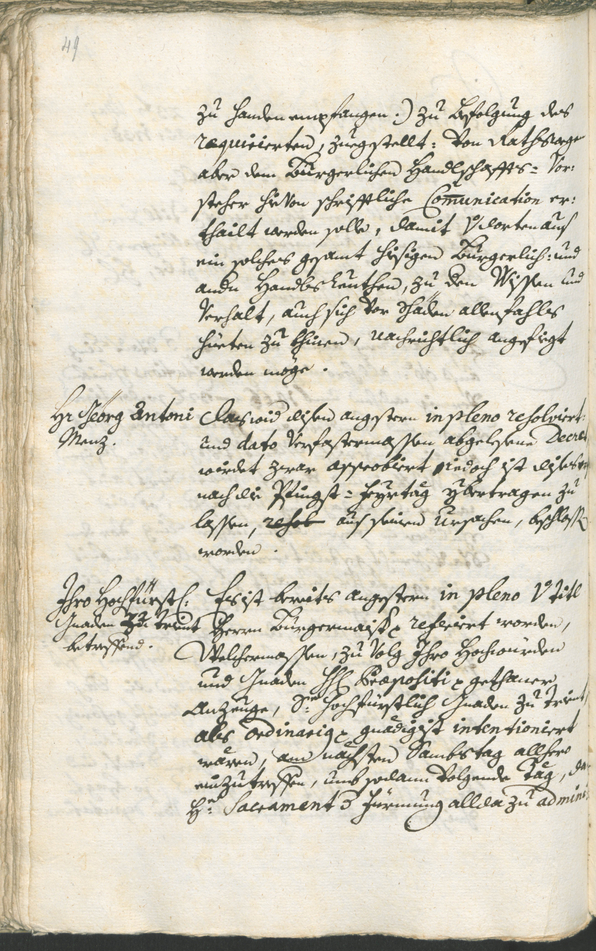 49
zu handen empfangen :) zu befolgung des
requirierten, zuegestellt: von Rathswege
aber dem Burgerlichen Handlschaffts= Vor:
steher hievon schrifftliche Comunication er:
thailt werden solle, damit dorten auf
ein solches gesamt hiesigen Burgerlich: und
andn Handls Leuthen, zu den Wissen und
Verhalt, auch sich vor Schaden allenfahls
hieten zu khinen, nachrichtlich angefiegt
werden möge.
Hr Georg Antoni
Menz.
Das wid disen angestern in pleno resolviert:
und dato verfastermassen abgelesene Decret
wirdet zwar approbiert jedoch ist dises
nach die Pfingst= Feyrtag ybertragen zu
lassen, aus seinen Ursachen, beschlossen
worden.
Ihro Hochfürstl:
Gnaden zu Trient
betreffend.
Es ist bereits angestern in pleno Titl
Herrn Burgermaister referiert worden,
Welchermassen, zu folg Ihro Hochwürden
und Gnaden Praepositi gethaner
Anzeuge, Se Hochfürstlich Gnaden zu Trient,
als ordinarig gnädigist intentioniert
wären, am nächsten Sambstag allhero
einzutreffen, und sodann volgende Täg, das
H: Sacrament d Firmung allda zu admini